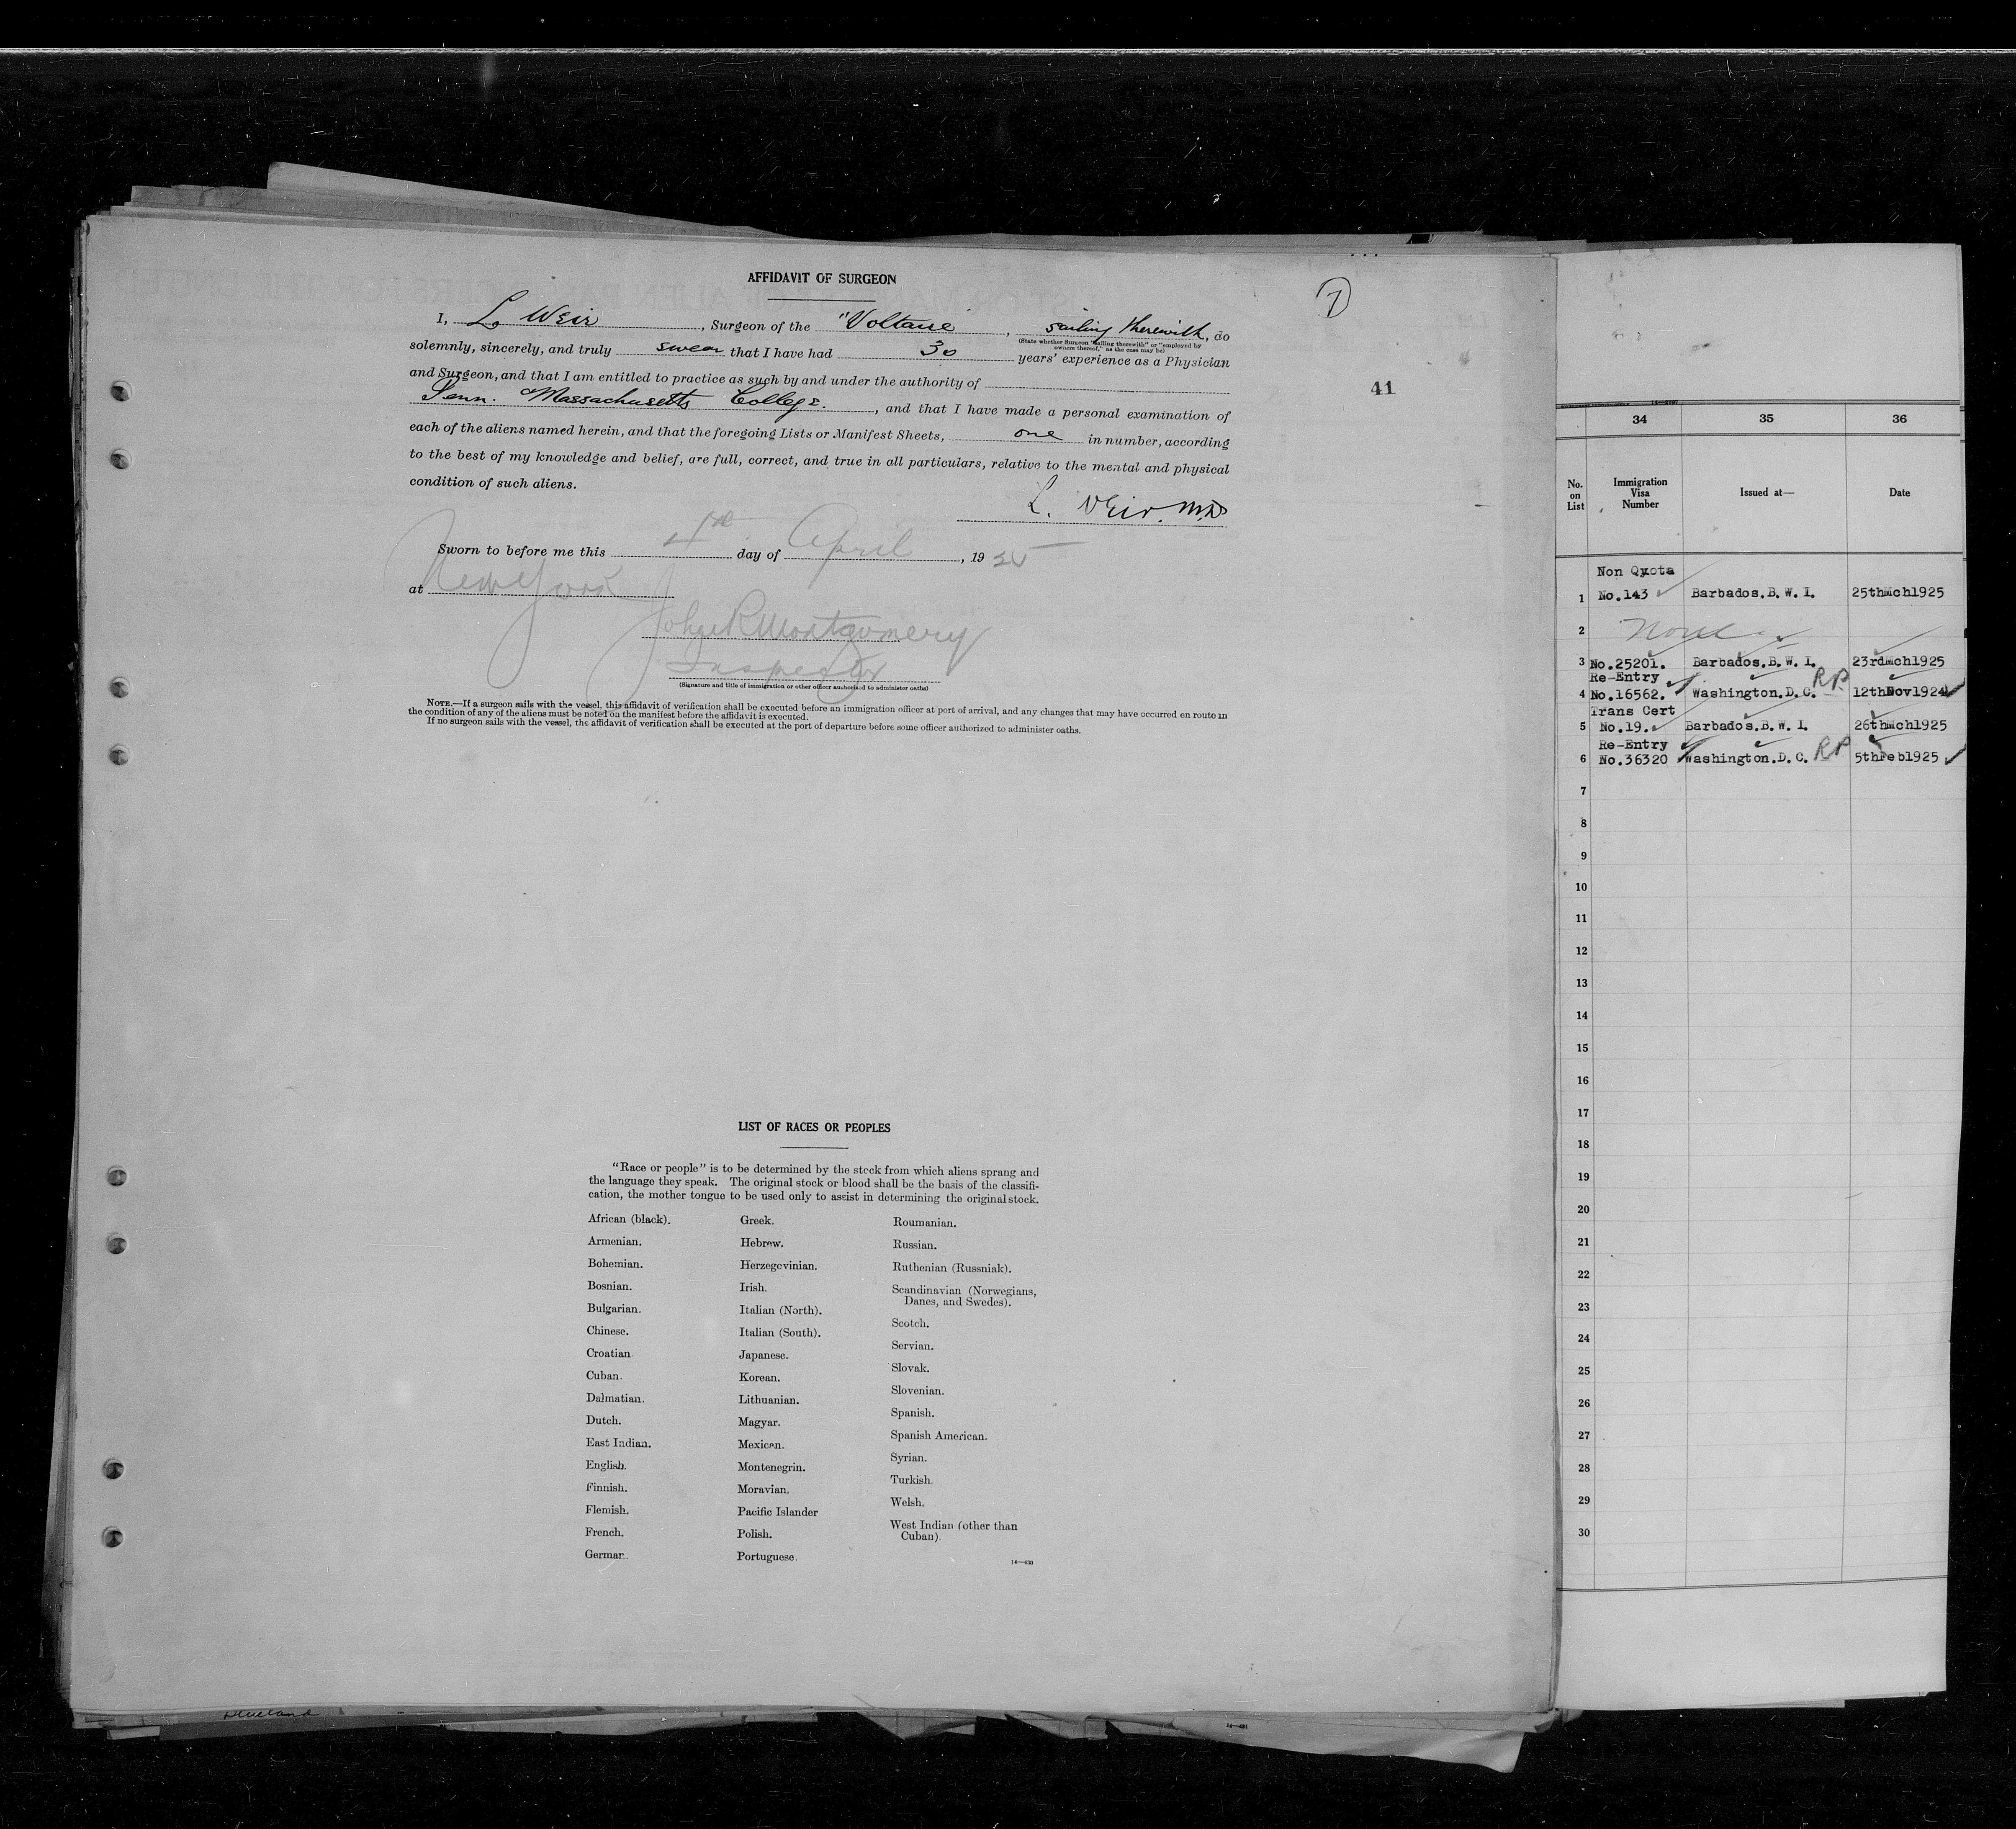 AFFIDAVIT OF SURGEON
1
I, L. Weir, Surgeon of the "Voltaire", sailing therewith, do
(State whether Surgeon "sailing therewith" or "employed by
owners thereof," as the case may be)
solemnly, sincerely, and truly swear that I have had 30 years' experience as a Physician
and Surgeon, and that I am entitled to practice as such by and under the authority of
41
Penn. Massachusetts College., and that I have made a personal examination of
each of the aliens named herein, and that the foregoing Lists or Manifest Sheets, one in number, according
to the best of my knowledge and belief, are full, correct, and true in all particulars, relative to the mental and physical
condition of such aliens.
L. Weir. M.D
Sworn to before me this 4th day of April, 1925
at New York
John R Montgomery
Inspector
(Signature and title of immigration or other officer authorized to administer oaths)
NOTE.—If a surgeon sails with the vessel, this affidavit of verification shall be executed before an immigration officer at port of arrival, and any changes that may have occurred en route in
the condition of any of the aliens must be noted on the manifest before the affidavit is executed.
If no surgeon sails with the vessel, the affidavit of verification shall be executed at the port of departure before some officer authorized to administer oaths.
LIST OF RACES OR PEOPLES
"Race or people" is to be determined by the stock from which aliens sprang and
the language they speak. The original stock or blood shall be the basis of the classifi-
cation, the mother tongue to be used only to assist in determining the original stock.
African (black).
Armenian.
Bohemian.
Bosnian.
Bulgarian.
Chinese.
Croatian.
Cuban.
Dalmatian.
Dutch.
East Indian.
English.
Finnish.
Flemish.
French.
German.
Greek.
Hebrew.
Herzegovinian.
Irish.
Italian (North).
Italian (South).
Japanese.
Korean.
Lithuanian.
Magyar.
Mexican.
Montenegrin.
Moravian.
Pacific Islander
Polish.
Portuguese.
Roumanian.
Russian.
Ruthenian (Russniak).
Scandinavian (Norwegians,
Danes, and Swedes).
Scotch.
Servian.
Slovak.
Slovenian.
Spanish.
Spanish American.
Syrian.
Turkish.
Welsh.
West Indian (other than
Cuban).
14—430
34 35 36
No. on List
Immigration Visa Number
Issued at—
Date
Non Quota
1 No.143 Barbados.B.W.I. 25thMch1925
2 None
3 No.25201. Barbados.B.W.I. 23rdMch1925
Re-Entry RP
4 No.16562. Washington.D.C. 12thNov1924
Trans Cert
5 No.19. Barbados.B.W.I. 26thMch1925
Re-Entry
6 No.36320 Washington.D.C. RP 5thFeb1925
7
8
9
10
11
12
13
14
15
16
17
18
19
20
21
22
23
24
25
26
27
28
29
30